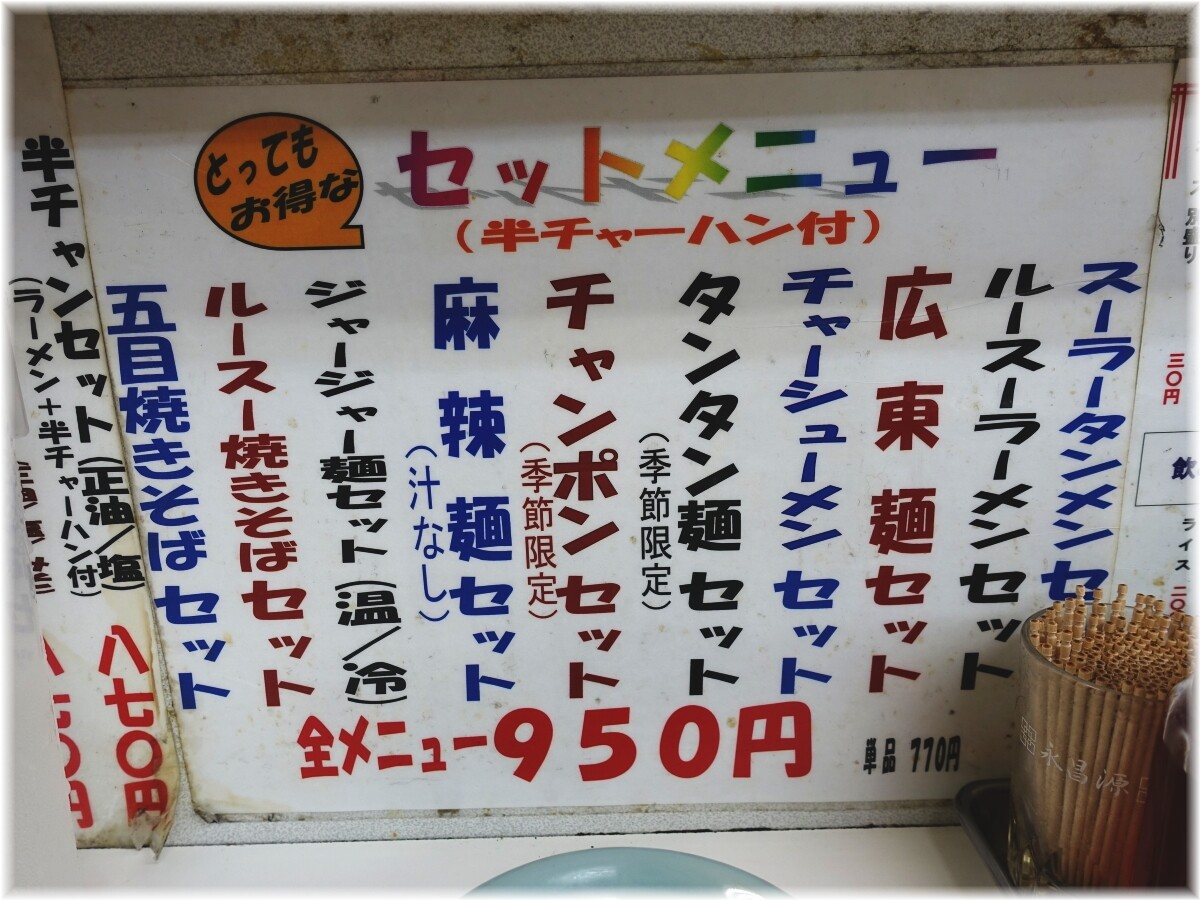 とっても
お得な
セットメニュー
(半チャーハン付)
スーラータンメンセ
ルースーラーメンセット
広東麺セット
チャーシューメンセット
タンタン麺セット
(季節限定)
チャンポンセット
(季節限定)
麻辣麺セット
(汁なし)
ジャージャー麺セット(温/冷)
ルースー焼きそばセット
五目焼きそばセット
全メニュー950円
単品 770円
半チャンセット(正油/塩)
八七〇円
(ラーメン+半チャーハン付)
三〇円
飲
ライス
永昌源